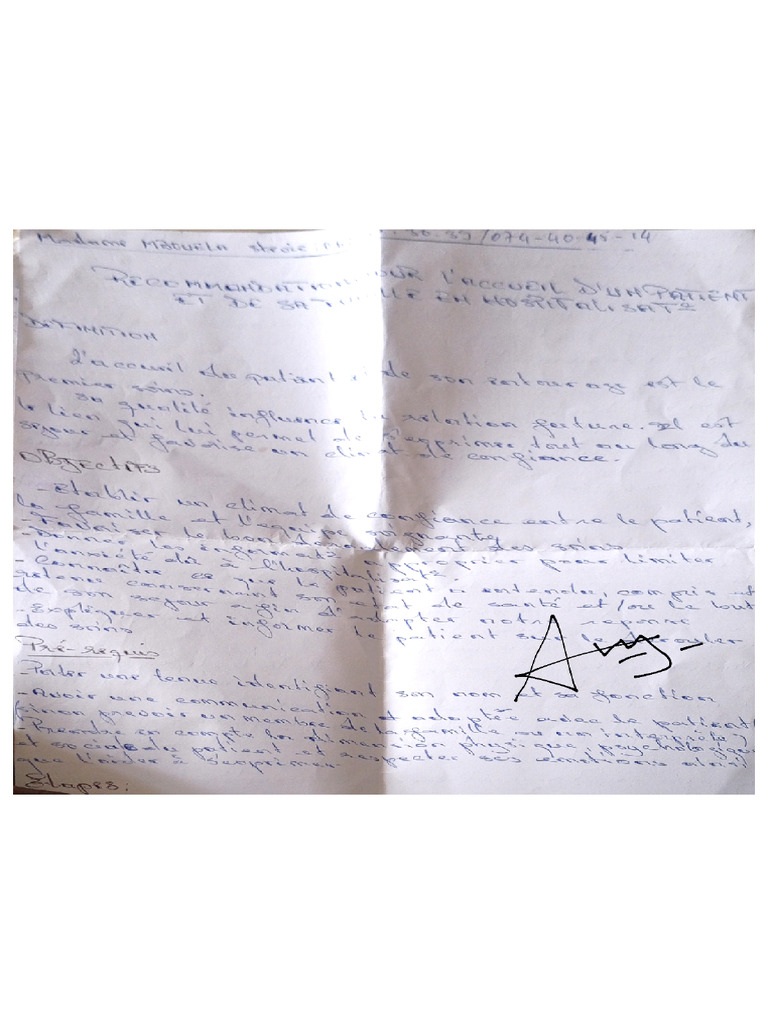 Madame MBOUELA 30-39/074-40-45-14
RECOMMANDATION POUR L'ACCUEIL D'UN PATIENT
ET DE SA FAMILLE EN HOSPITALISAT°
DEFINITION
L'accueil du patient et de son entourage est le
premier soins.
sa qualité influence la relation future. Il est
le lien qui lui permet de s'exprimer tout au long du
séjour et favorise un climat de confiance.
OBJECTIFS
- Etablir un climat de confiance entre le patient,
la famille et l'équipe
- Favoriser le des soins
- Donner les pour limiter
l'anxiété dû à l'hospitalisat°.
- Connaître ce que le patient a entendu, compris et
retenu concernant son état de santé et/ou le but
de son sejour afin d'adapter notre reponse
- Expliquer et informer le patient sur le
des soins
Pré-requis
- Porter une tenue identifiant son nom et sa fonction
- Avoir une communication adaptée avec le patient
(sinon prevoir un membre de la famille ou un interprète)
- Prendre en compte la dimension physique, psychologique
et sociale du patient et respecter ses emotions ainsi
que l'aider à s'exprimer.
Etapes: